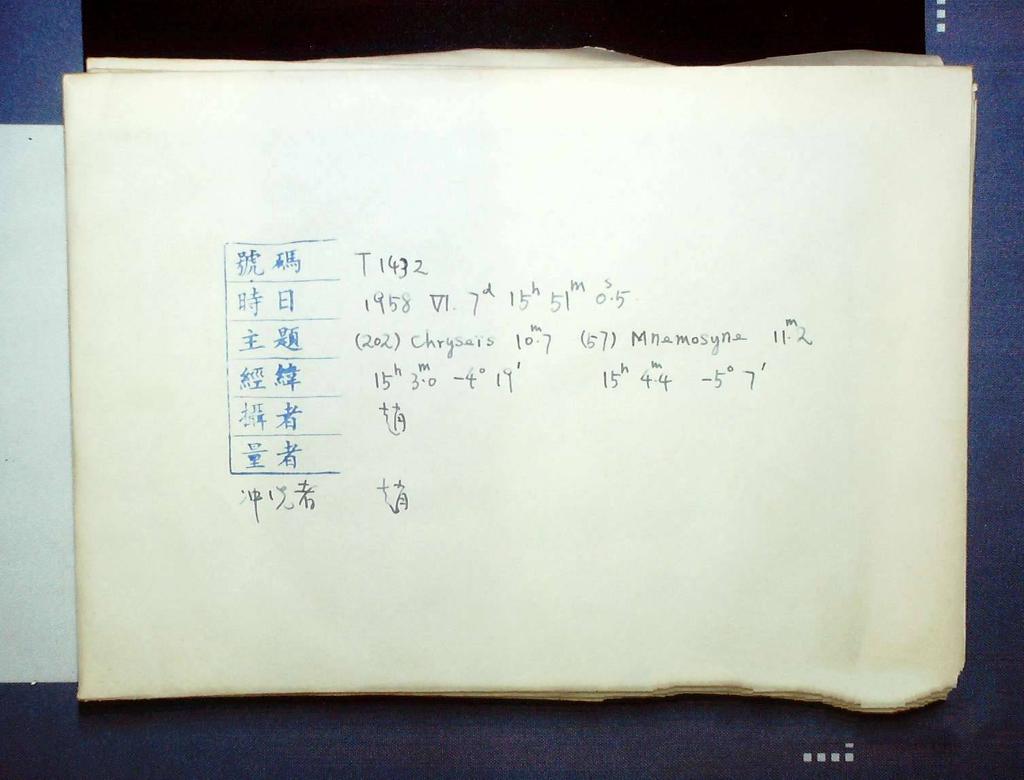 號碼 T 1432
時日 1958 VI. 7ᵈ 15ʰ 51ᵐ 0ˢ.5
主題 (202) Chryseis 10ᵐ.7 (57) Mnemosyne 11ᵐ.2
經緯 15ʰ 3ᵐ.0 -4° 19′ 15ʰ 4ᵐ.4 -5° 7′
攝者 趙
量者
冲洗者 趙